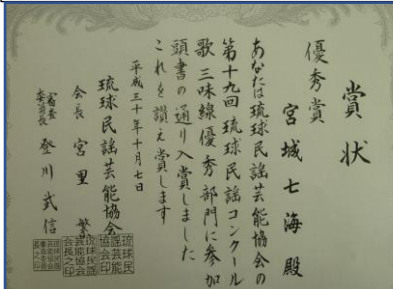 賞状
優秀賞
宮城七海殿
あなたは琉球民謡芸能協会の
第十九回琉球民謡コンクール
歌三味線優秀部門に参加
頭書の通り入賞しました
これを讃え賞します
平成三十年十月七日
琉球民謡芸能協会
会長 宮里 繁
審査委員長 登川式信
琉球民謡芸能協会印
琉球民謡芸能協会会長之印